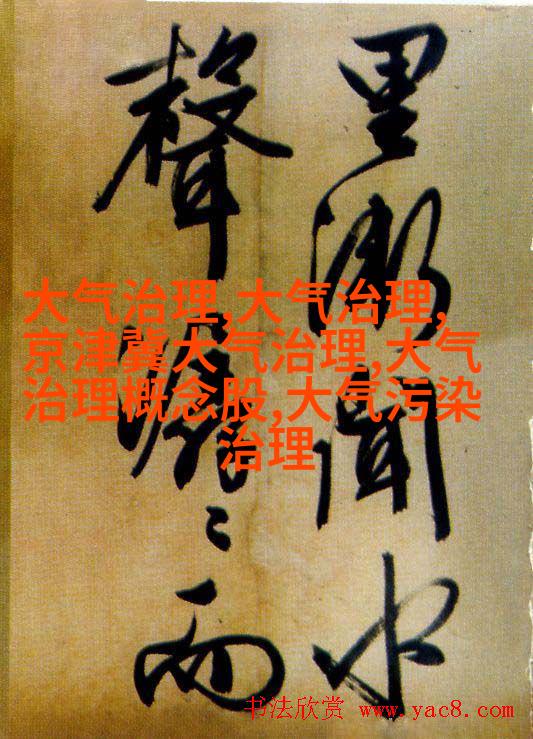 里漸聞水
聲潺〻而
大气治理,大气治理,
京津冀大气治理,大气
治理概念股,大气污染
治理
书法欣赏 www.yac8.com